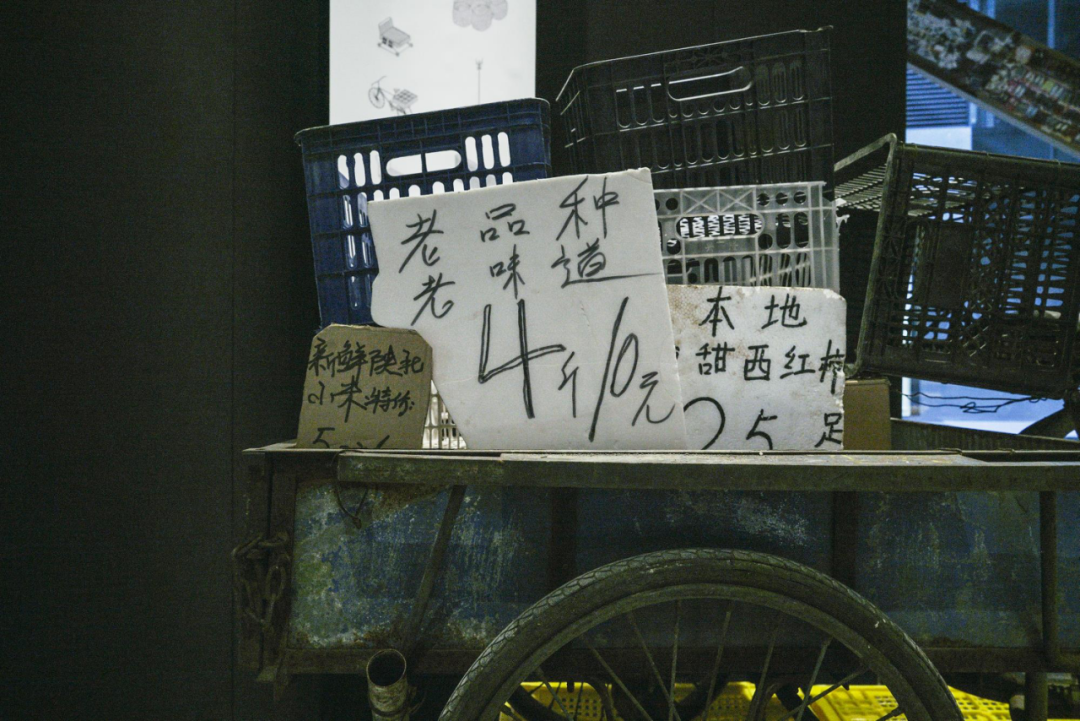 老品种
老味道
4斤/10元
新鲜陕北
小米特价
本地
甜西红柿
25足